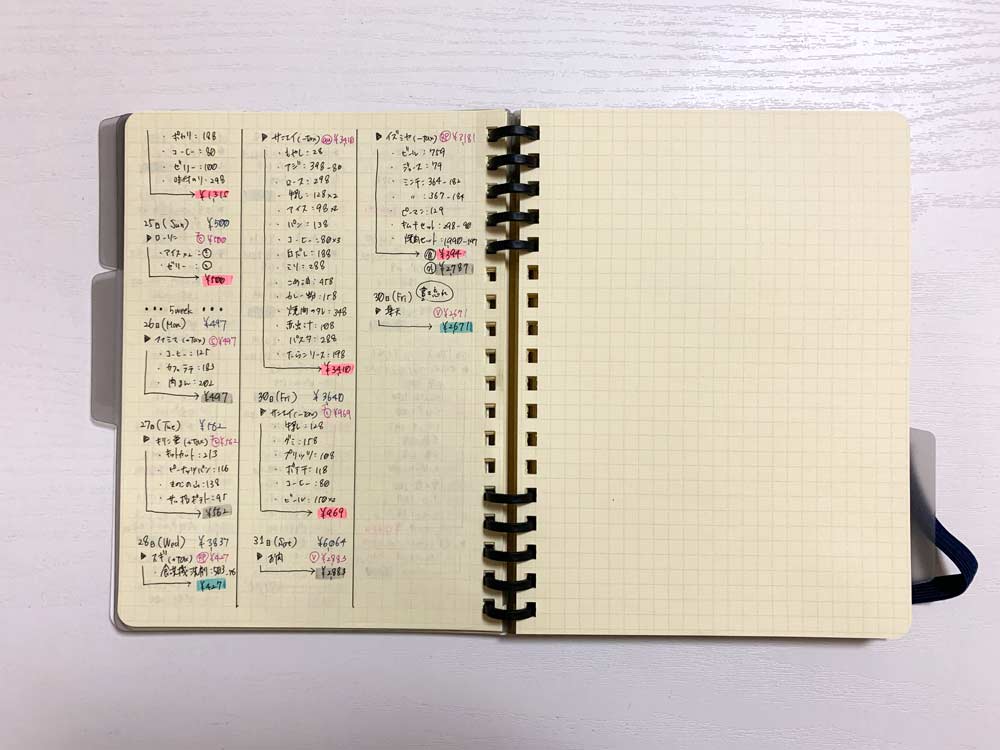 ・ポカリ：188
・コーヒー：80
・ゼリー：100
・味付のり：298
→ ¥1,315
25日(Sun) ¥500
▶ローソン ¥500
・アイス
・ゼリー：
→ ¥500
••• 5week •••
26日(Mon) ¥497
▶ファミマ(+Tax) ¥497
・コーヒー：125
・カフェラテ：183
・肉まん：202
→ ¥497
27日(Tue) ¥562
▶キリン堂(+Tax) ¥562
・キットカット：213
・ピーナッツパン：116
・きのこの山：138
・サッポロポテト：95
→ ¥562
28日(Wed) ¥3837
▶スギ(+Tax) ¥427
・食洗機洗剤：503-76
→ ¥427
▶サンエイ(-Tax) ¥3,410
・もやし：28
・アジ：398-80
・ロース：298
・牛乳：128×2
・アイス：98×2
・パン：138
・コーヒー：80×3
・白だし：188
・ミリ：288
・こめ油：458
・カレー粉：158
・焼肉のタレ：348
・赤出汁：108
・パスタ：288
：198
→ ¥3,410
30日(Fri) ¥3640
▶サンエイ(-Tax) ¥969
・牛乳：128
・グミ：158
・プリッツ：108
・ポテチ：118
・コーヒー：80
・ビール：150×2
→ ¥969
31日(Sat) ¥6,064
▶お肉 ¥2,883
→ ¥2,883
▶イズミヤ(-Tax) ¥3,181
・ビール：759
・ジュース：79
・ミンチ：364-182
・〃：367-184
・ピーマン：129
・キムチセット：298-90
・焼肉セット：1,990-
→ ¥394
¥2,787
30日(Fri) 書き忘れ
▶楽天 ¥2,671
→ ¥2,671